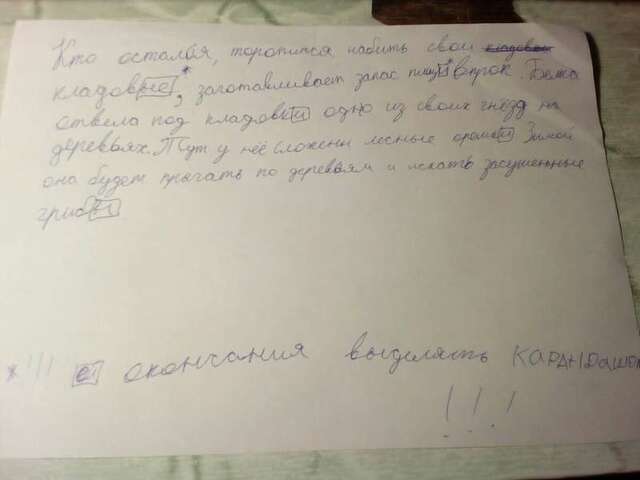 Кто остался, торопится набить свои кладовы
кладовые*, заготавливает запас пищи* впрок. Белка
отвела под кладовки одно из своих гнёзд на
деревьях. Тут у неё сложены лесные орехи. Зимой
она будет прыгать по деревьям и искать засушенные
грибы.
* !!! окончания выделять КАРАНДАШОМ
!!!